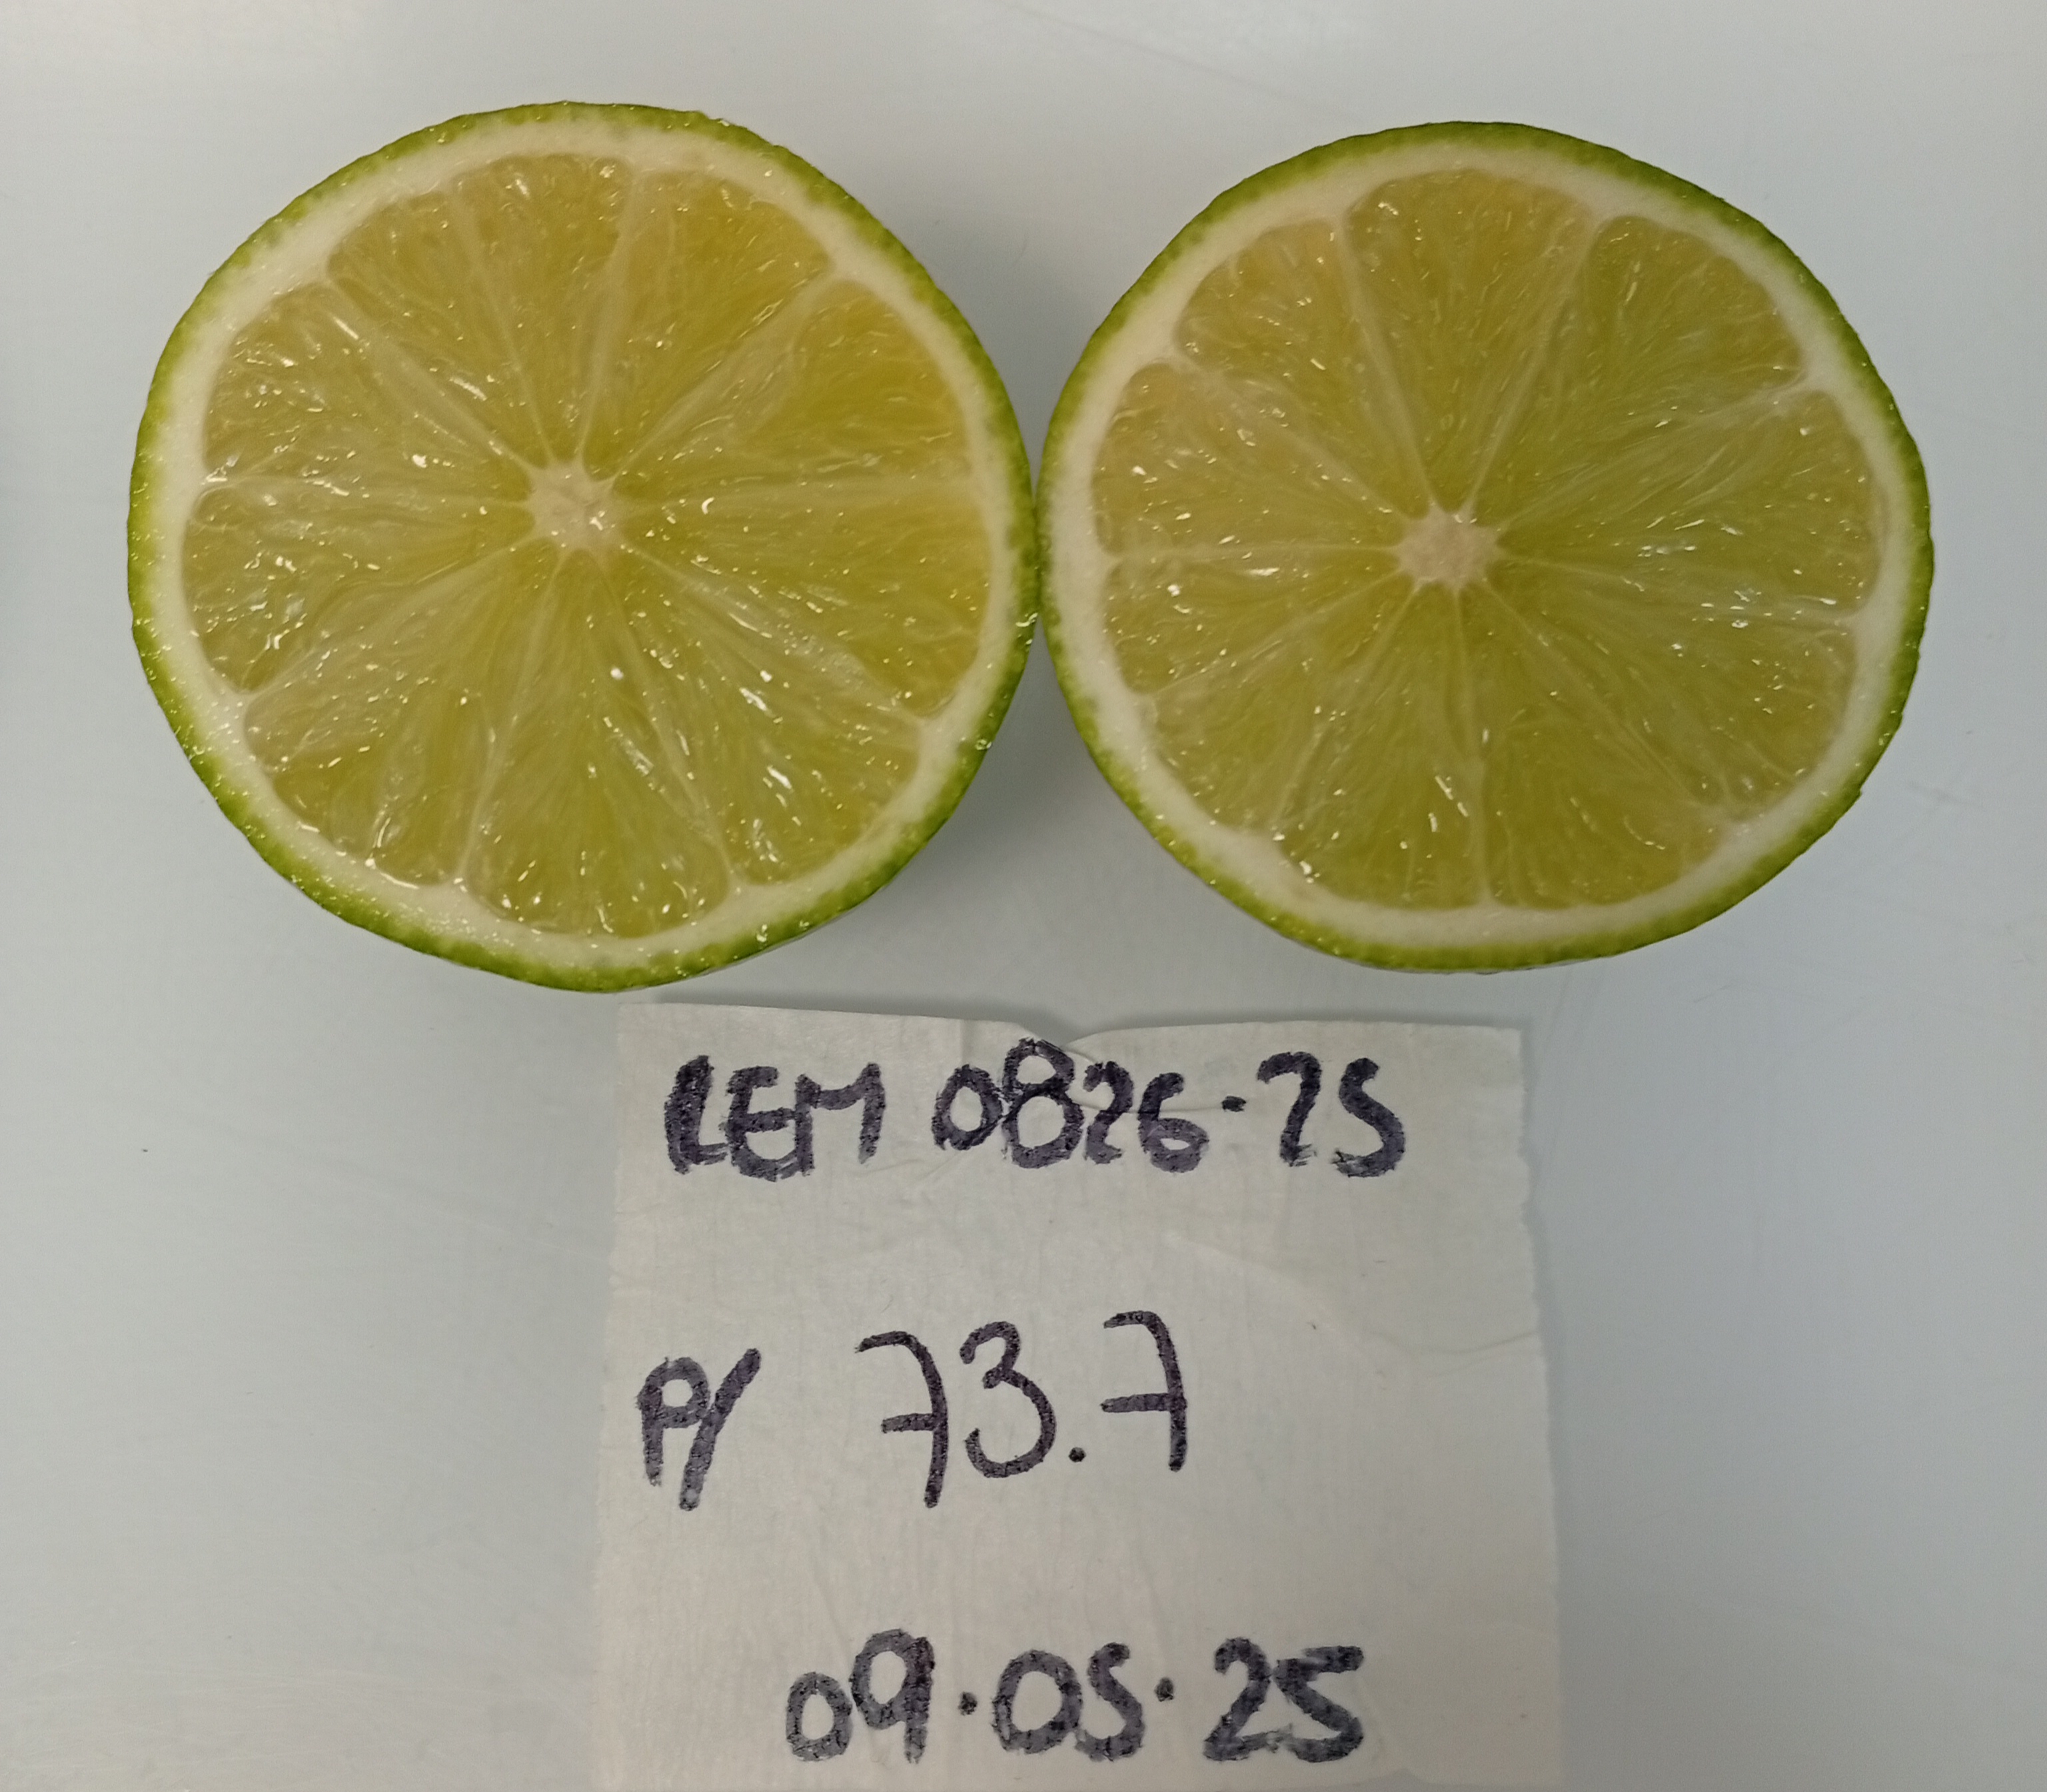 LEM 0826-25
P/ 73.7
09.05.25